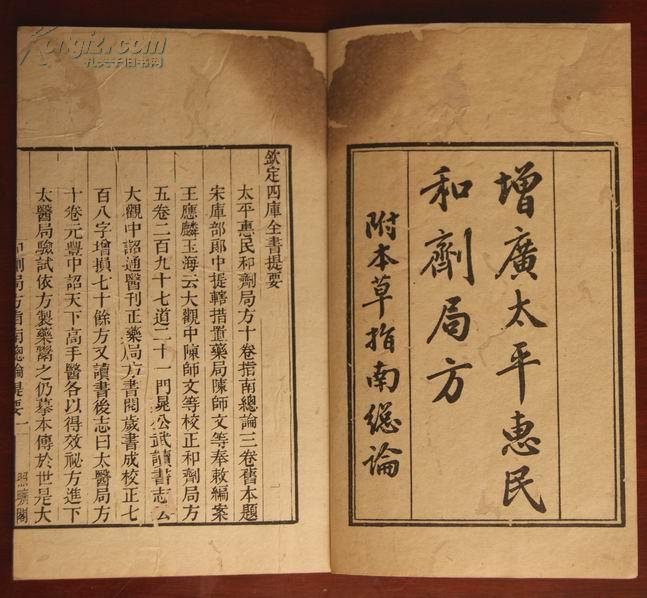 增廣太平惠民
和劑局方
附本草指南總論
欽定四庫全書提要
太平惠民和劑局方十卷指南總論三卷舊本題
宋庫部郎中提轄措置藥局陳師文等奉敕編案
王應麟玉海云大觀中陳師文等校正和劑局方
五卷二百九十七道二十一門晁公武讀書志云
大觀中詔通醫刊正藥局方書閱歲書成校正七
百八字增損七十餘方又讀書後志曰太醫局方
十卷元豐中詔天下高手醫各以得效祕方進下
太醫局驗試依方製藥鬻之仍摹本傳於世是大
和劑局方指南總論提要 一 照曠閣
Kongfz.com
孔夫子旧书网